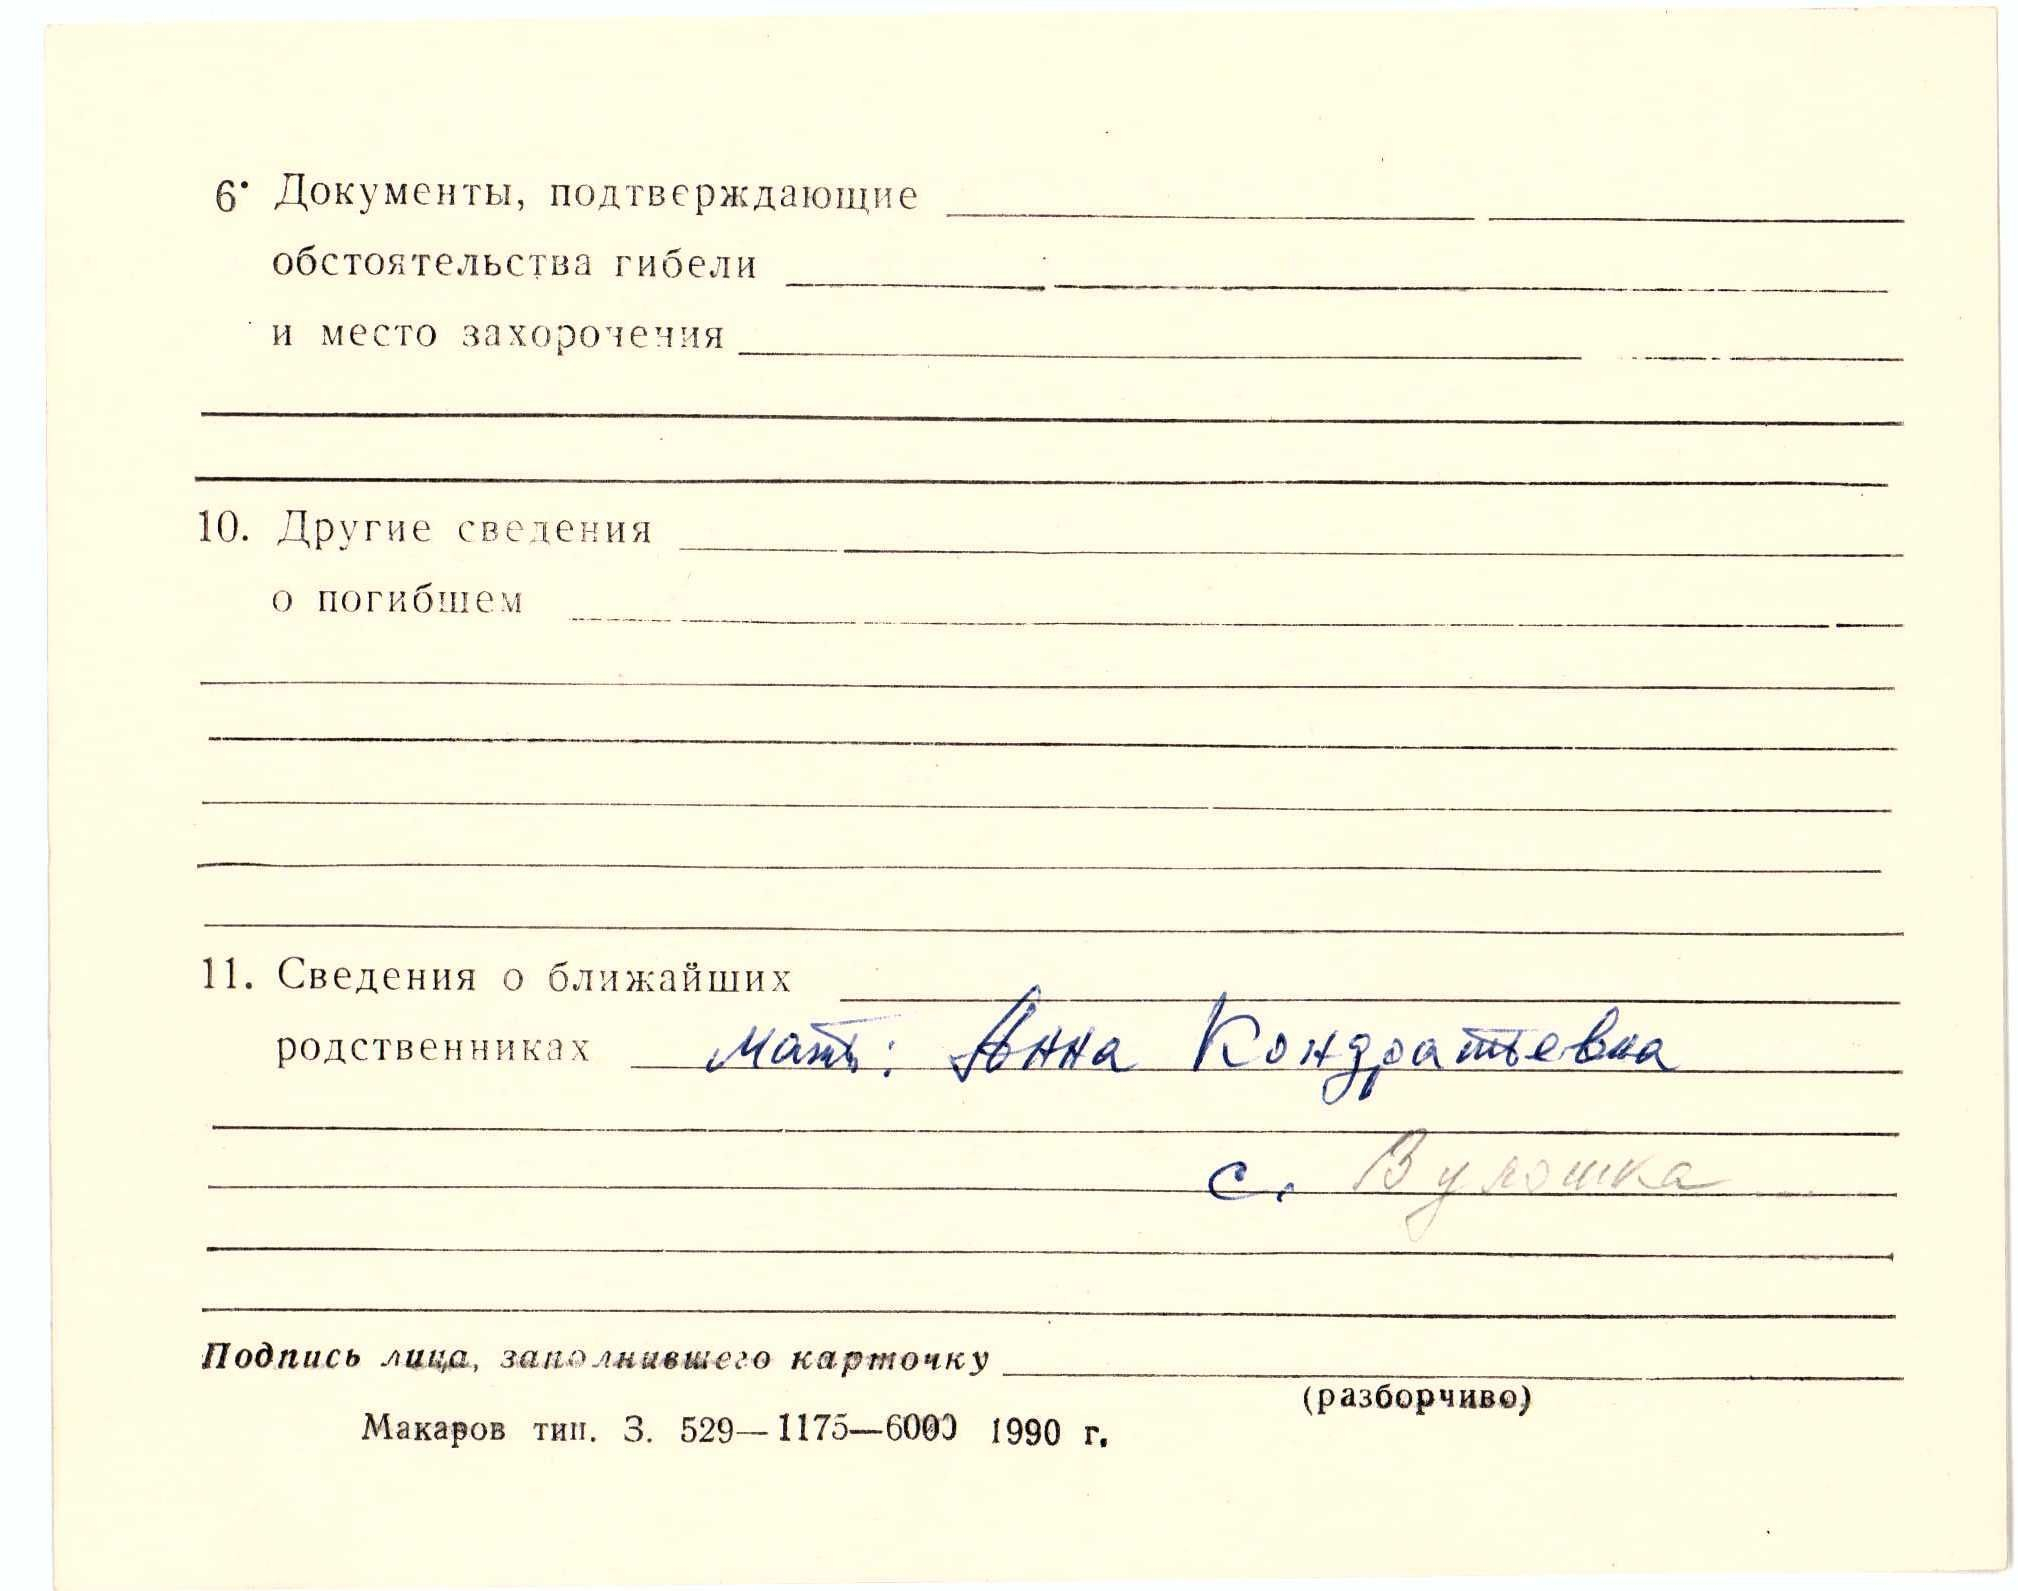 6. Документы, подтверждающие
обстоятельства гибели
и место захорочения
10. Другие сведения
о погибшем
11. Сведения о ближайших
родственниках мать: Анна Кондратьевна
с.
Подпись лица, заполнившего карточку
(разборчиво)
Макаров тип. З. 529—1175—6000 1990 г.